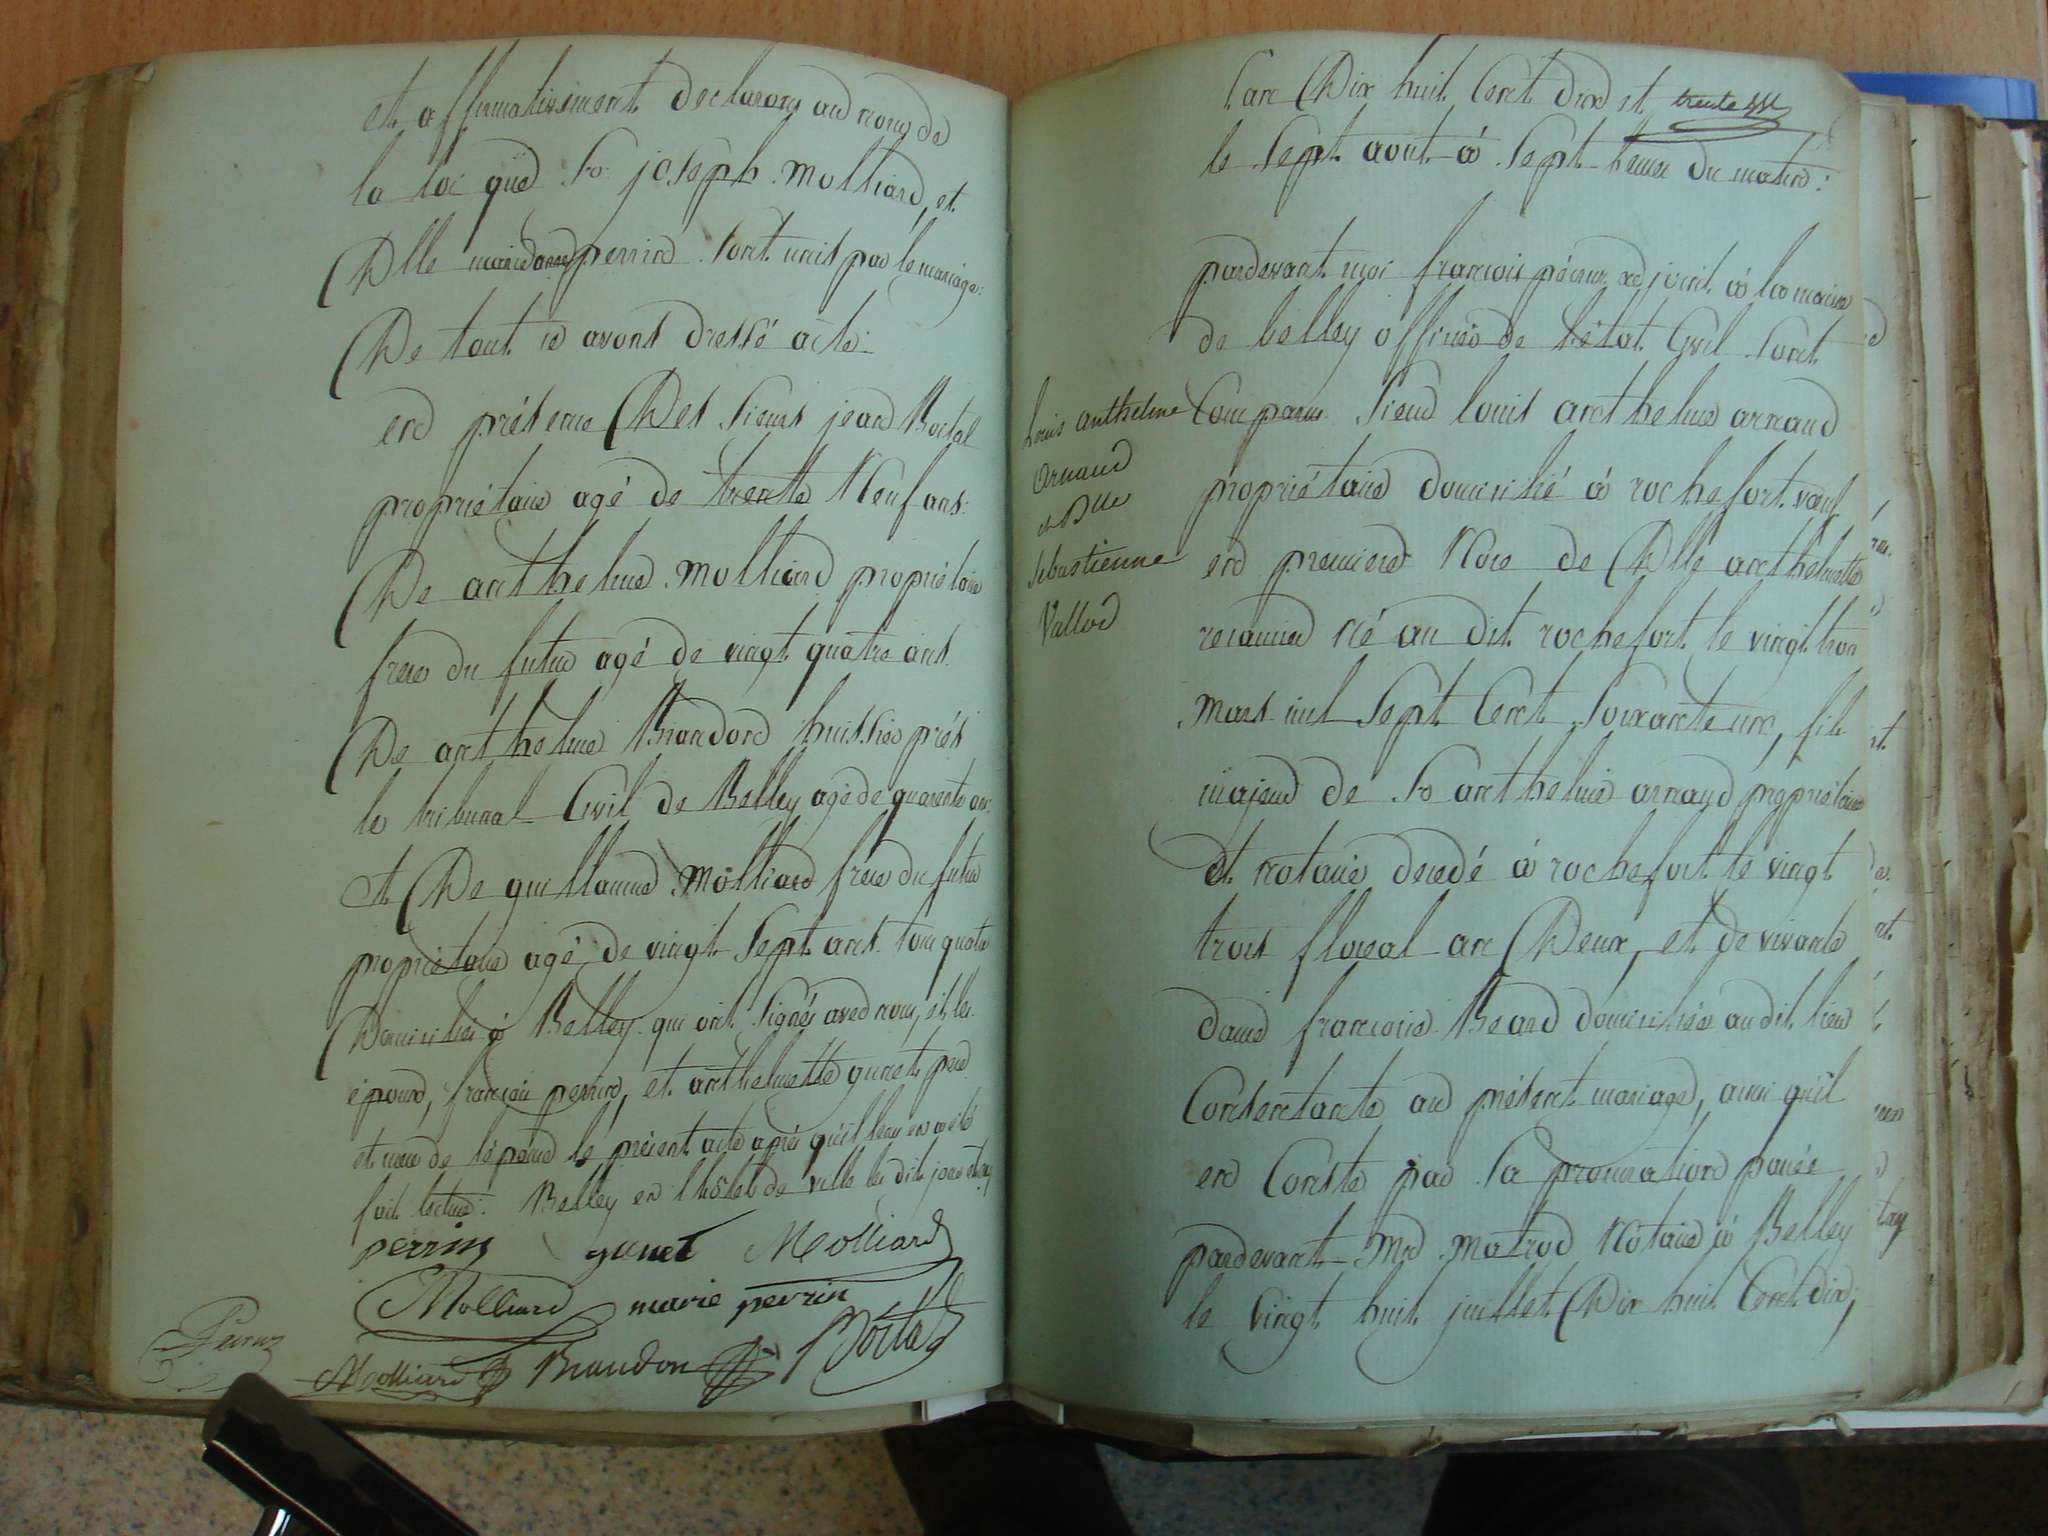 et affirmativement declarons au nom de
la loi que Sr. joseph Molliard, et
Dlle marie anne perrin sont unis par le mariage:
De tout ce avons dressé acte:
en présence Des sieurs jean Boital
propriétaire agé de trente Neuf ans:
De anthelme Molliard propriétaire
frere du futur agé de vingt quatre ans
De anthelme Brandon huissier prés
le tribunal Civil de Belley agé de quarante ans
et De guillaume Molliard frere du futur
propriétaire agé de vingt Sept ans tous quatre
Domiciliés à Belley qui ont signés avec nous, et les
époux, françois perrin, et anthelmette gunet pere
et mere de l'épouse le présent acte aprés qu'il leur en a été
fait lecture: Belley en l'hôtel de ville les dits jour et an
perrin gunet Molliard
Molliard marie perrin
Molliard Brandon Boital
l'an Dix huit Cent Dix et
le Sept aout à Sept heures du matin:
pardevant moi françois adjoint à la mairie
de belley officier de l'état Civil sont
Comparus Sieur louis anthelme arnaud
propriétaire domicilié à rochefort veuf
en premiere Noce de Dlle anthelmette
né au dit rochefort le vingt trois
Mars mil Sept Cent Soixante un, fils
majeur de Sr anthelme arnaud propriétaire
et notaire decedé à rochefort le vingt
trois floreal an Deux, et de vivante
dame françoise Beard domiciliée audit lieu
Consentante au présent mariage, ainsi qu'il
en Conste par sa procuration passée
pardevant Me Motrod Notaire à Belley
le vingt huit juillet Dix huit Cent dix,
Louis Anthelme
Arnaud
et Dlle
Sebastienne
Vallod